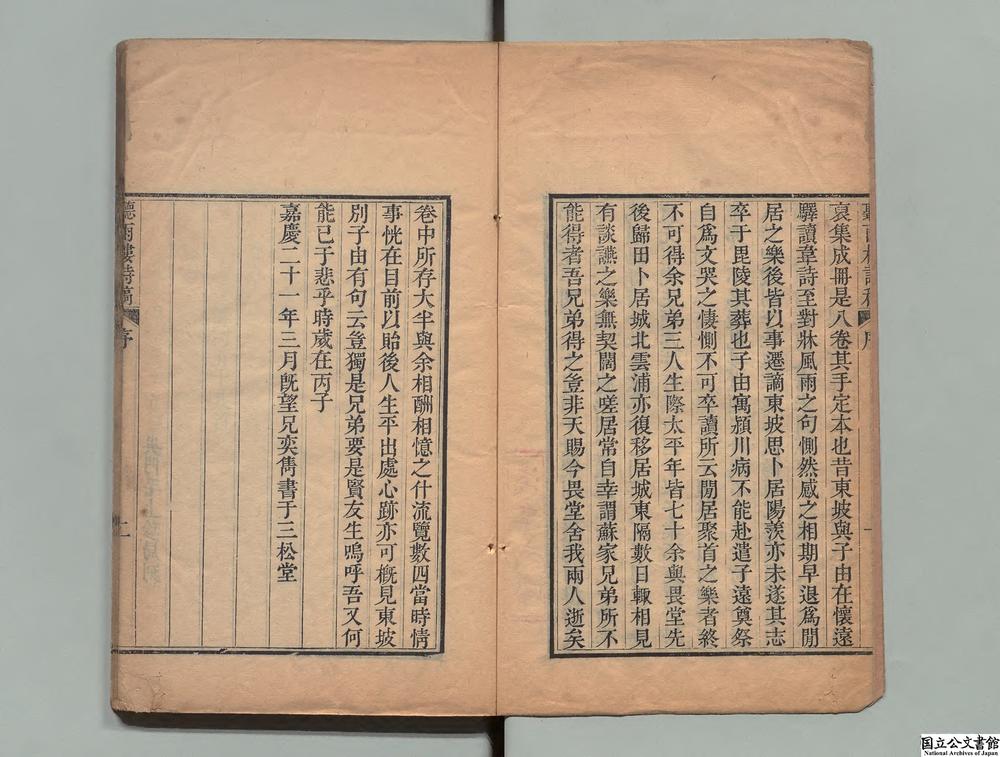 裒集成冊是八卷其手定本也昔東坡與子由在懷遠
驛讀韋詩至對牀風雨之句惻然感之相期早退爲閒
居之樂後皆以事遷謫東坡思卜居陽羨亦未遂其志
卒于毘陵其葬也子由寓潁川病不能赴遣子遠奠祭
自爲文哭之悽惻不可卒讀所云閒居聚首之樂者終
不可得余兄弟三人生際太平年皆七十余與畏堂先
後歸田卜居城北雲浦亦復移居城東隔數日輒相見
有談讌之樂無契闊之嗟居常自幸謂蘇家兄弟所不
能得者吾兄弟得之豈非天賜今畏堂舍我兩人逝矣
卷中所存大半與余相酬相憶之什流覽數四當時情
事恍在目前以貽後人生平出處心跡亦可概見東坡
別子由有句云豈獨是兄弟要是賢友生嗚呼吾又何
能已于悲乎時歲在丙子
嘉慶二十一年三月旣望兄奕雋書于三松堂
聽雨樓詩稿 序 二
国立公文書館
National Archives of Japan